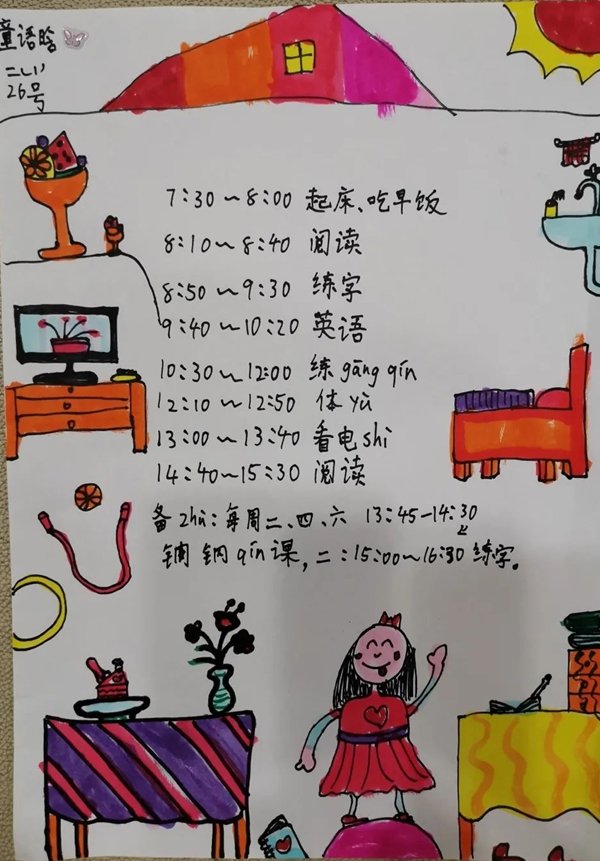 童语晗
二(1)
26号
7:30～8:00 起床、吃早饭
8:10～8:40 阅读
8:50～9:30 练字
9:40～10:20 英语
10:30～12:00 练gāng qín
12:10～12:50 体yù
13:00～13:40 看电shì
14:40～15:30 阅读
备zhù：每周二、四、六 13:45-14:30
钢qín课，二：15:00～16:30 练字。